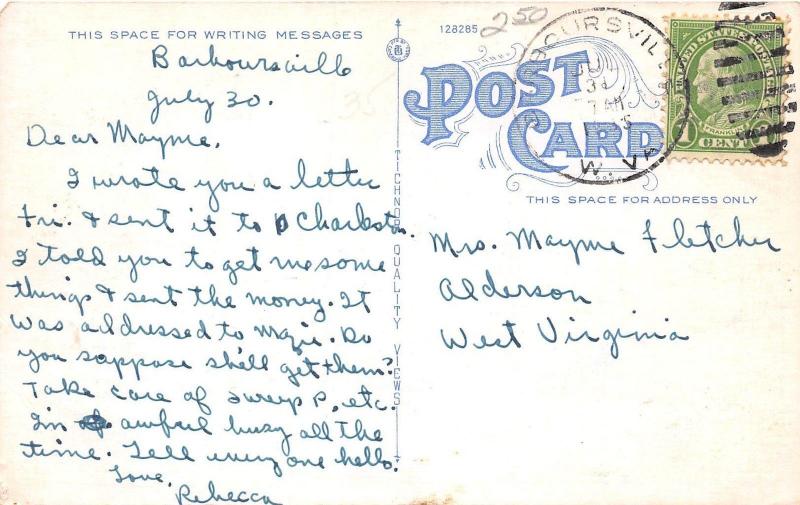 THIS SPACE FOR WRITING MESSAGES
Barboursville
July 30.
Dear Mayme,
I wrote you a letter
Fri. & sent it to Charleston.
I told you to get me some
things & sent the money. It
was addressed to Mazie. Do
you suppose she'll get them?
Take care of sweep P. etc.
I'm awful busy all the
time. Tell every one hello.
Love,
Rebecca
TICHNOR QUALITY VIEWS
128285
250
POST
CARD
BOURSVILL
JUL
31
7 AM
W. VA.
UNITED STATES POSTAGE
FRANKLIN
1 CENT
THIS SPACE FOR ADDRESS ONLY
Mrs. Mayme Fletcher
Alderson
West Virginia